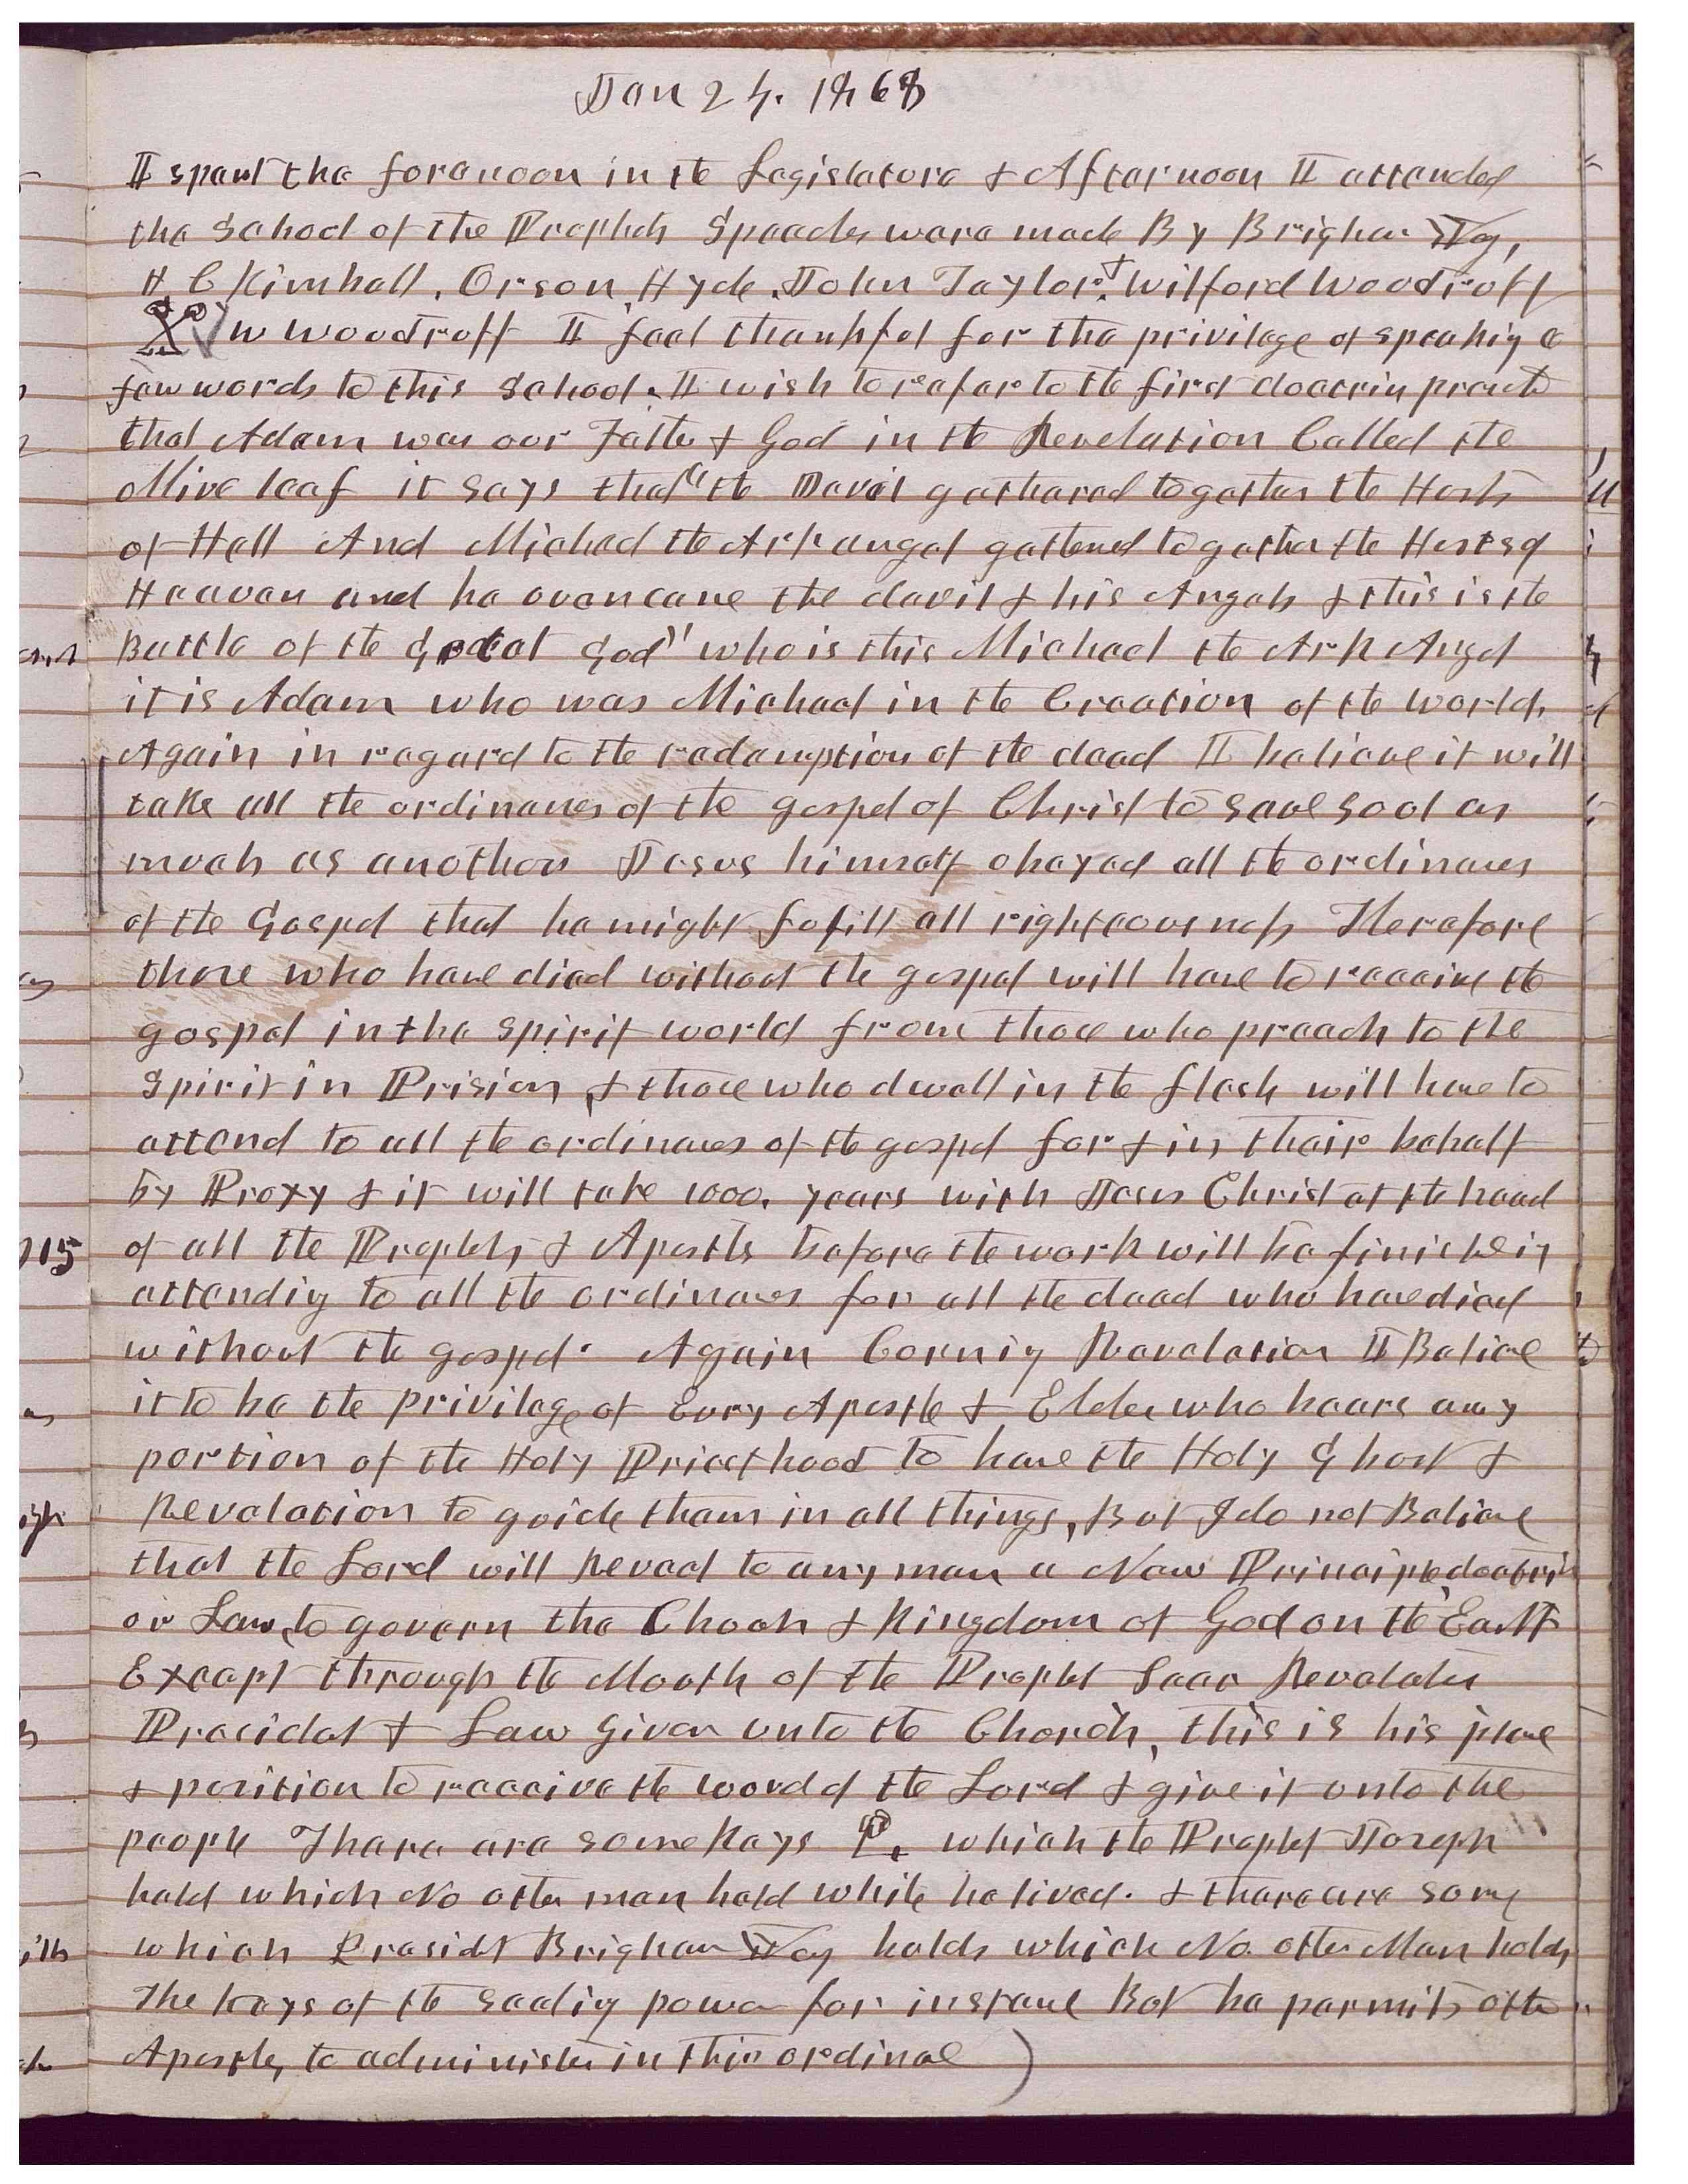 Jan 24. 1868
I spent the forenoon in the Legislature & Afternoon I attended
the School of the Prophets Speeches were made By Brigham Yg,
H C Kimball. Orson Hyde. John Taylor. & Wilford Woodruff
W Woodruff I feel thankful for the privilege of speakig a
few words to this School. I wish to refer to the first doctrin preached
that Adam was our Father & God in the Revelation Called the
Olive leaf it says that "the Devil gathered together the Hosts
of Hell And Michael the Arkangel gathered together the Hosts of
Heaven and he overcame the devil & his Angels & this is the
Battle of the Great God" who is this Michael the Ark Angel
it is Adam who was Michael in the Creation of the world,
Again in regard to the redemption of the dead I believe it will
take all the ordinances of the gospel of Christ to save soul as
much as another Jesus himself obeyed all the ordinances
of the Gospel that he might fufill all righteousness Therefore
those who have died without the gospel will have to receive the
gospel in the spirit world from those who preach to the
Spirit in Prision, & those who dwell in the flesh will have to
attend to all the ordinances of the gospel for & in their behalf
by Proxy & it will take 1000. years with Jesus Christ at the head
of all the Prophets & Apostles before the work will be finished in
attendig to all the ordinances for all the dead who have died
without the gospel. Again Cornig Revelation I Believe
it to be the privilege of Evry Apostle & Elder who bears any
portion of the Holy Priesthood to have the Holy Ghost &
Revelation to guide them in all things, But I do not Believe
that the Lord will Reveal to any man a New Principle, doctrin
or Law, to govern the Church & Kingdom of God on the Earth
Except through the Mouth of the Prophet Seer Revelator
Presidet & Law Given unto the Church, this is his place
& position to receive the word of the Lord & give it unto the
people There are some Keys which the Prophet Joseph
held which No other man held while he lived. & there are some
which Presidet Brigham Yog holds which No other Man holds,
The keys of the sealig power for instance But he permits other
Apostles, to administer in this ordinance )